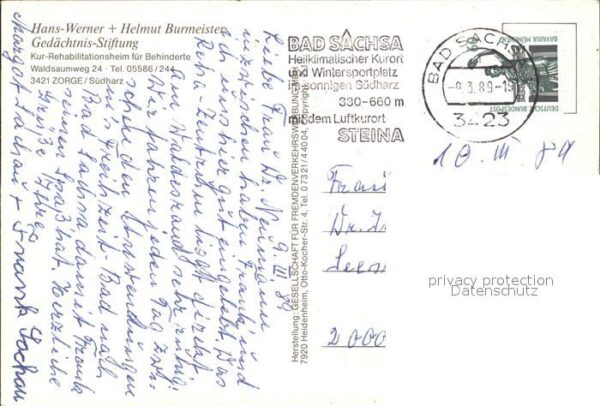 Hans-Werner + Helmut Burmeister
Gedächtnis-Stiftung
Kur-Rehabilitationsheim für Behinderte
Waldsaumweg 24 · Tel. 05586/244
3421 ZORGE/Südharz
BAD SACHSA
Heilklimatischer Kurort
und Wintersportplatz
im sonnigen Südharz
330-660 m
mit dem Luftkurort
STEINA
BAD SACHSA
-9.3.89-19
3423
DEUTSCHE BUNDESPOST
BAVARIA MÜNCHEN
9. III. 89
Liebe Frau Dr. Neumann
inzwischen haben Frank und
ich uns hier gut eingelebt. Das
Reha-Zentrum liegt direkt
am Waldesrand, sehr ruhig!
Wir fahren jeden Tag
Bad Sachsa damit Frank
seinen Spaß hat. Herzliche
Grüße Ihre
Margot Sachau + Frank Sachau
Herstellung: GESELLSCHAFT FÜR FREMDENVERKEHRSWERBUNG
7920 Heidenheim, Otto-Kocher-Str. 4, Tel. 07321/44004, Copyright
10. III. 89
Frau
Dr.
2000
privacy protection
Datenschutz